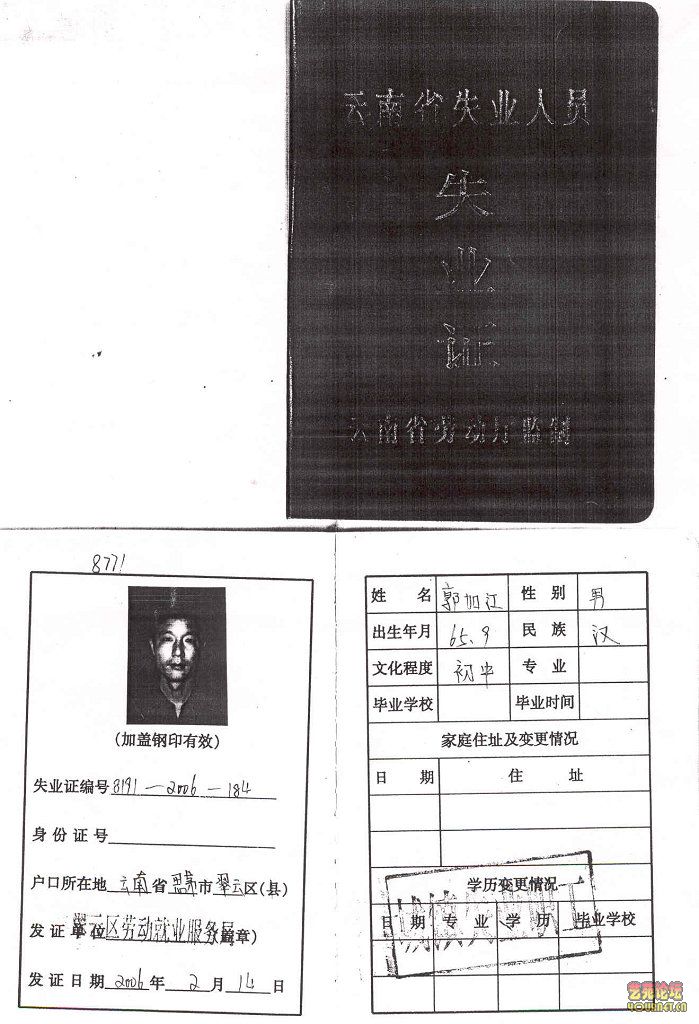 云南省失业人员
失
业
证
云南省劳动厅监制
8771
(加盖钢印有效)
失业证编号 8191—2006—184
身份证号
户口所在地 云南省思茅市翠云区(县)
发证单位 翠云区劳动就业服务局 (盖章)
发证日期 2006年2月14日
姓名 郭加江 性别 男
出生年月 65.9 民族 汉
文化程度 初中 专业
毕业学校 毕业时间
家庭住址及变更情况
日期 住址
学历变更情况
日期 专业 学历 毕业学校
艺苑论坛